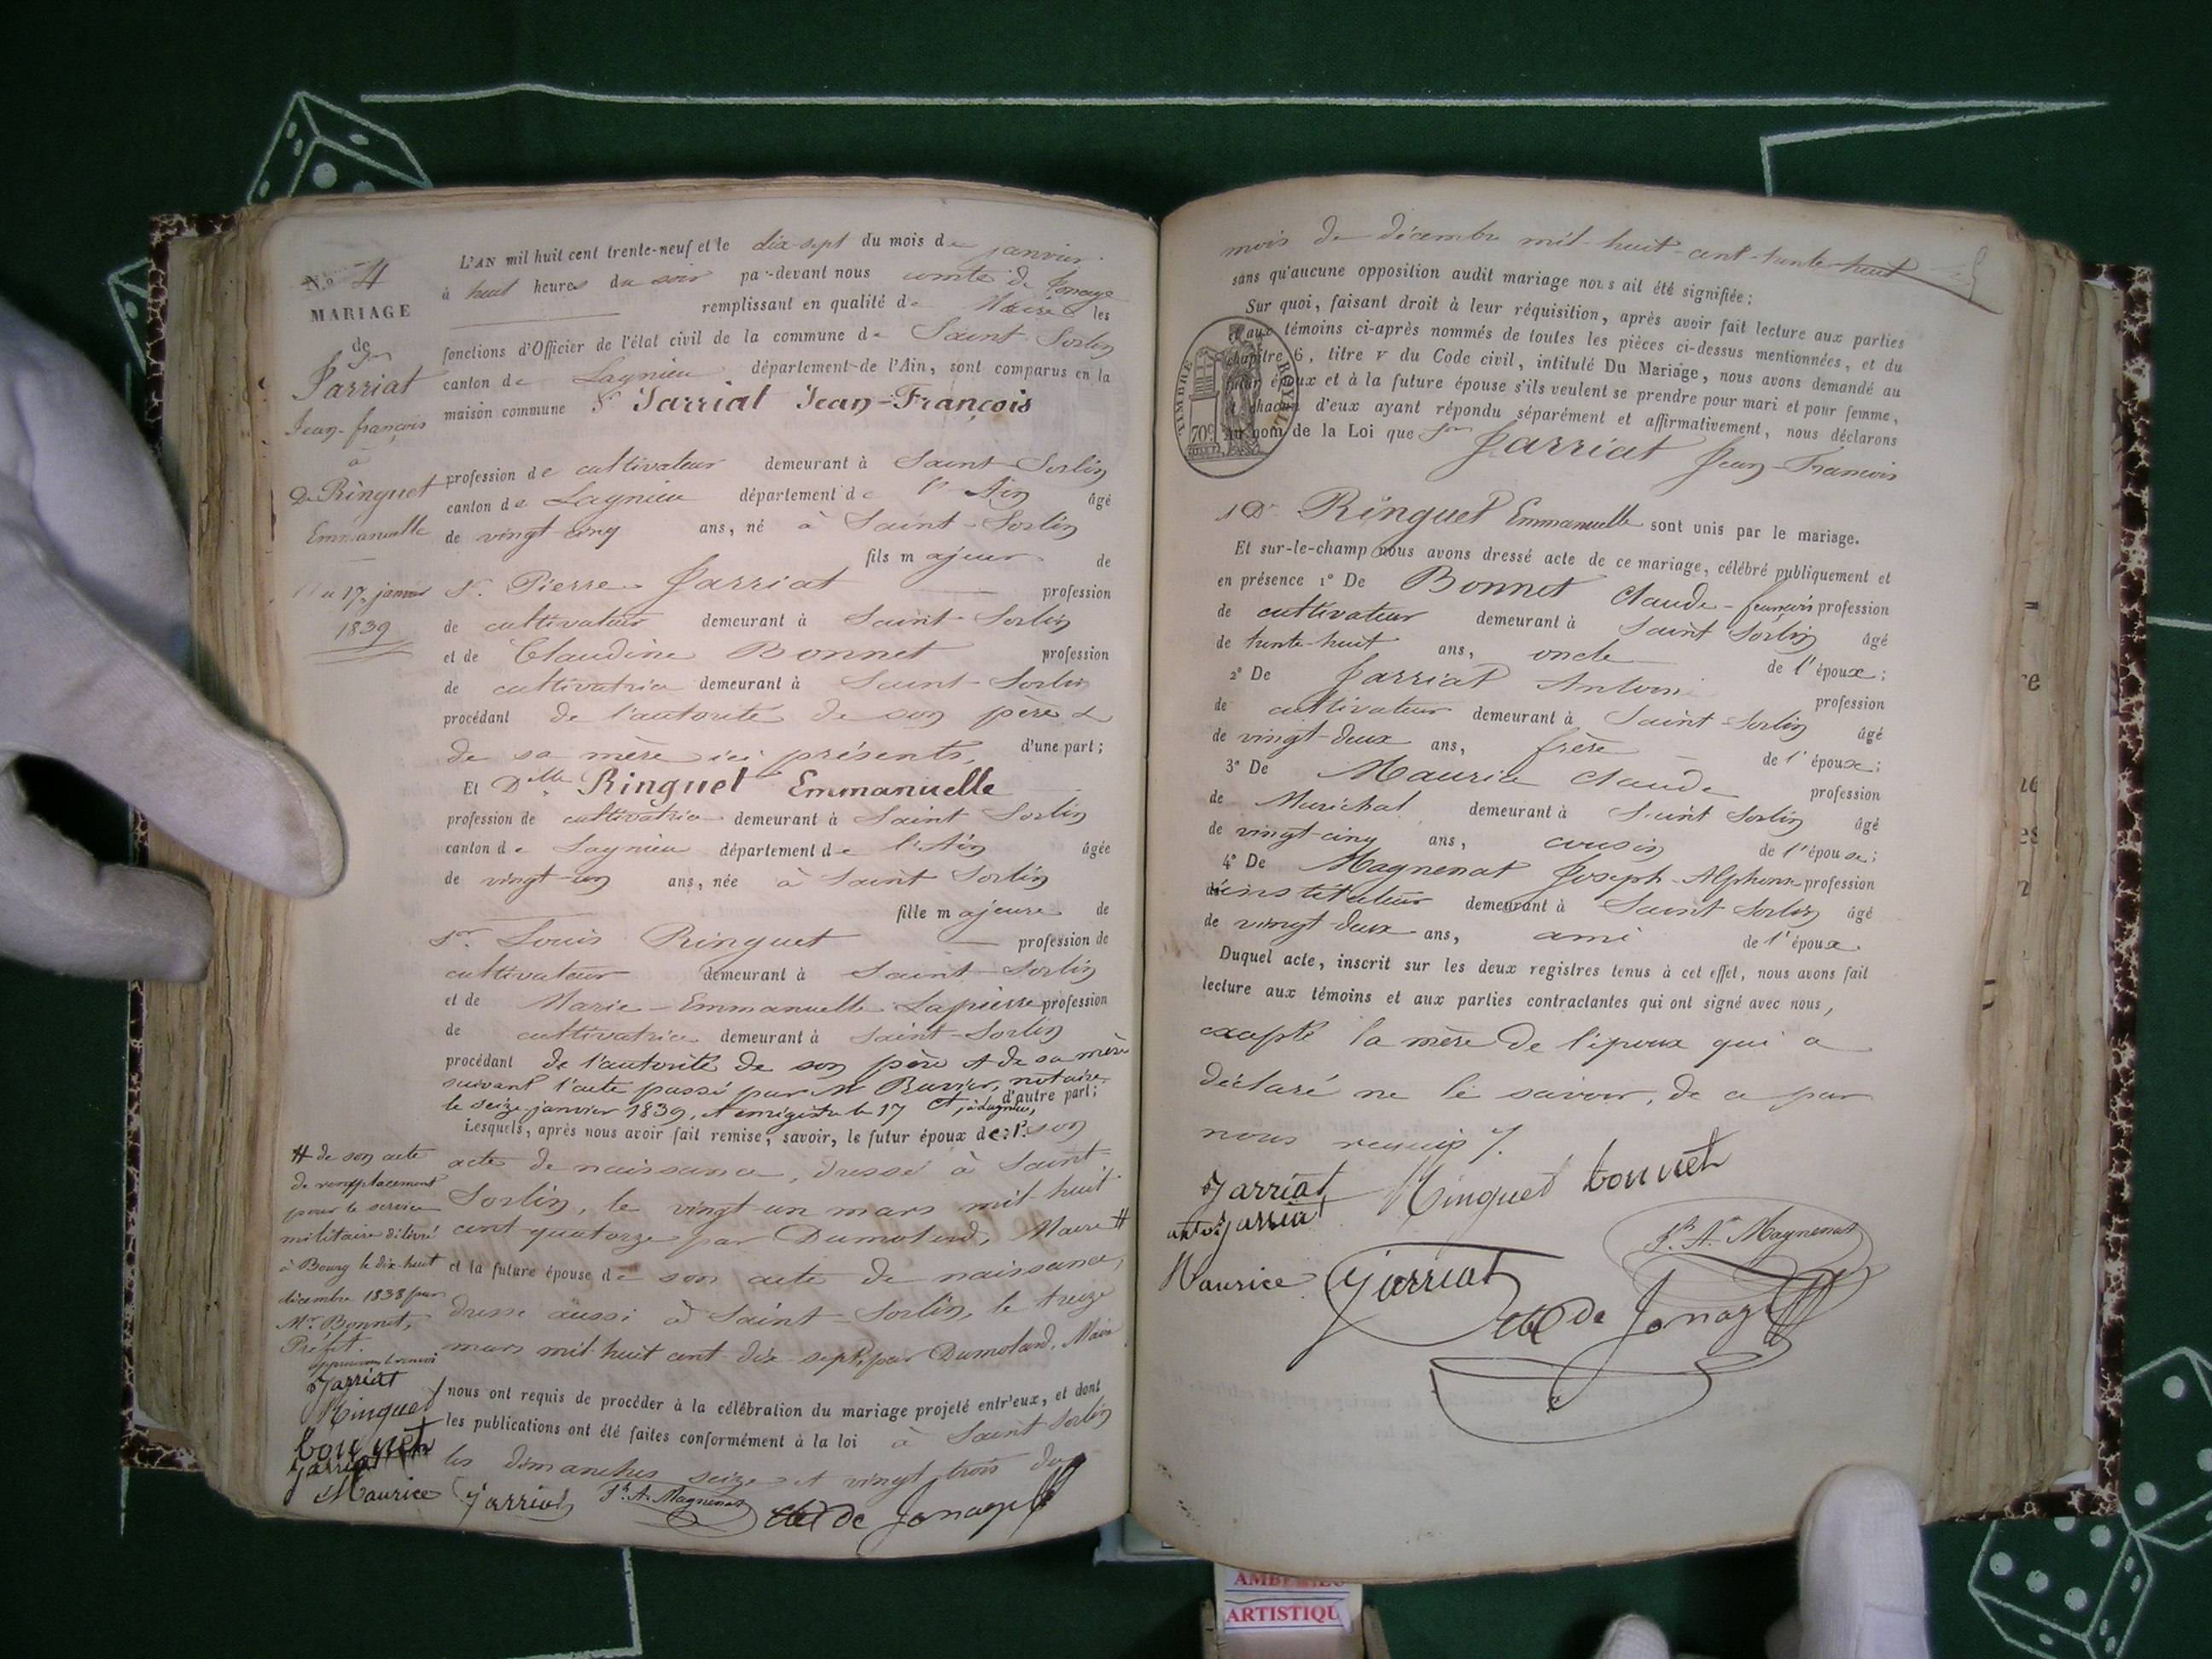 N.o 4
MARIAGE
de
Sr
Jarriat
Jean-françois
à
Dlle Ringuet
Emmanuelle
17 janvier
1839
L'AN mil huit cent trente-neuf et le dix-sept du mois de janvier
à huit heures du soir par-devant nous comte de Jonage
remplissant en qualité de Maire les
fonctions d'Officier de l'état civil de la commune de Saint-Sorlin
canton de Lagnieu département de l'Ain, sont comparus en la
maison commune Sr Jarriat Jean-François
profession de cultivateur demeurant à Saint-Sorlin
canton de Lagnieu département de l'Ain âgé
de vingt-cinq ans, né à Saint-Sorlin
fils majeur de
Sr. Pierre Jarriat profession
de cultivateur demeurant à Saint-Sorlin
et de Claudine Bonnet profession
de cultivatrice demeurant à Saint-Sorlin
procédant de l'autorité de son père &
de sa mère ici présents, d'une part;
Et Dlle Ringuet Emmanuelle
profession de cultivatrice demeurant à Saint Sorlin
canton de Lagnieu département de l'Ain âgée
de vingt-un ans, née à Saint Sorlin
fille majeure de
Sr. Louis Ringuet profession de
cultivateur demeurant à Saint-Sorlin
et de Marie-Emmanuelle Lapierre profession
de cultivatrice demeurant à Saint-Sorlin
procédant de l'autorité de son père & de sa mère
suivant l'acte passé par Me notaire
le seize janvier 1839, & enregistré le 17 ct, à Lagnieu, d'autre part;
Lesquels, après nous avoir fait remise, savoir, le futur époux de: 1°. son
acte de naissance, dressé à Saint-
Sorlin, le vingt-un mars mil huit
cent quatorze par Dumolard, Maire #
et la future épouse de son acte de naissance,
dressé aussi à Saint-Sorlin, le treize
mars mil huit cent dix-sept, par Dumolard, Maire
nous ont requis de procéder à la célébration du mariage projeté entr'eux, et dont
les publications ont été faites conformément à la loi à Saint Sorlin
les dimanches seize & vingt trois du
# de son acte
de remplacement
pour le service
militaire délivré
à Bourg le dix-huit
décembre 1838 par
Mr. Bonnet,
Préfet.
Jarriat
Ringuet
bonnet
Jarriat
Maurice Jarriat Jh. A. Magnenat Cte de Jonage
mois de décembre mil-huit-cent-trente-huit
sans qu'aucune opposition audit mariage nous ait été signifiée;
Sur quoi, faisant droit à leur réquisition, après avoir fait lecture aux parties
et aux témoins ci-après nommés de toutes les pièces ci-dessus mentionnées, et du
chapitre 6, titre v du Code civil, intitulé Du Mariage, nous avons demandé au
futur époux et à la future épouse s'ils veulent se prendre pour mari et pour femme,
et chacun d'eux ayant répondu séparément et affirmativement, nous déclarons
au nom de la Loi que Sr Jarriat Jean-François
TIMBRE ROYAL
70c
& Dlle Ringuet Emmanuelle sont unis par le mariage.
Et sur-le-champ nous avons dressé acte de ce mariage, célébré publiquement et
en présence 1° De Bonnet Claude-françois profession
de cultivateur demeurant à Saint Sorlin âgé
de trente-huit ans, oncle de l'époux;
2° De Jarriat Antoine profession
de cultivateur demeurant à Saint-Sorlin âgé
de vingt-deux ans, frère de l'époux;
3° De Maurice Claude profession
de Maréchal demeurant à Saint Sorlin âgé
de vingt-cinq ans, cousin de l'épouse;
4° De Magnenat Joseph-Alphonse profession
d'instituteur demeurant à Saint Sorlin âgé
de vingt-deux ans, ami de l'époux.
Duquel acte, inscrit sur les deux registres tenus à cet effet, nous avons fait
lecture aux témoins et aux parties contractantes qui ont signé avec nous,
excepté la mère de l'époux qui a
déclaré ne le savoir, de ce par
nous requis.
Jarriat Ringuet bonnet
antoi Jarriat
Jh. A. Magnenat
Maurice Jarriat
Cte de Jonage
AMBERIEU
ARTISTIQU